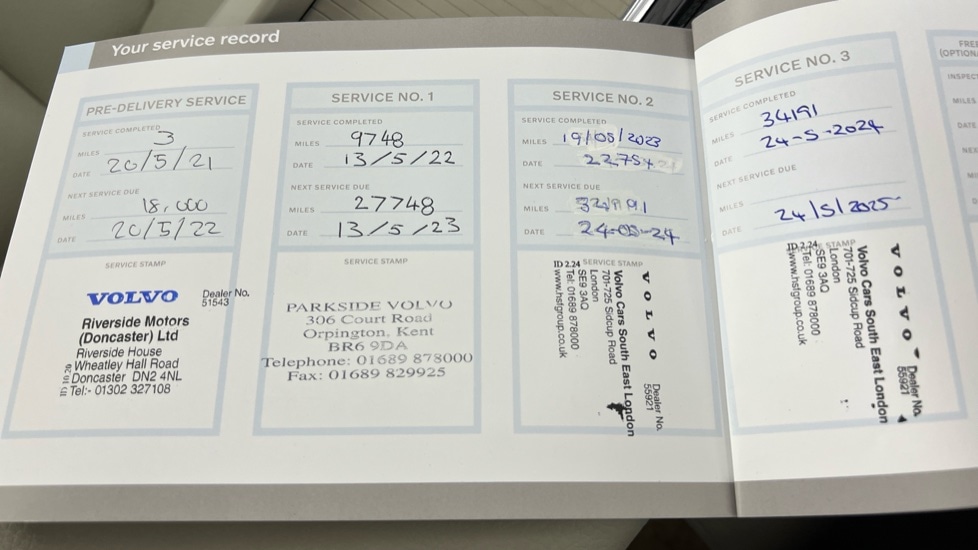 Your service record
PRE-DELIVERY SERVICE
SERVICE COMPLETED
MILES 3
DATE 20/5/21
NEXT SERVICE DUE
MILES 18,000
DATE 20/5/22
SERVICE STAMP
VOLVO
Dealer No.
51543
Riverside Motors
(Doncaster) Ltd
Riverside House
Wheatley Hall Road
Doncaster DN2 4NL
Tel:- 01302 327108
ID 10.20
SERVICE NO. 1
SERVICE COMPLETED
MILES 9748
DATE 13/5/22
NEXT SERVICE DUE
MILES 27748
DATE 13/5/23
SERVICE STAMP
PARKSIDE VOLVO
306 Court Road
Orpington, Kent
BR6 9DA
Telephone: 01689 878000
Fax: 01689 829925
SERVICE NO. 2
SERVICE COMPLETED
MILES 19/05/2023
DATE
NEXT SERVICE DUE
MILES
DATE 24-05-24
SERVICE STAMP
VOLVO
Dealer No.
55921
Volvo Cars South East London
701-725 Sidcup Road
London
SE9 3AQ
Tel: 01689 878000
www.hsfgroup.co.uk
ID 2.24
SERVICE NO. 3
SERVICE COMPLETED
MILES 34191
DATE 24-5-2024
NEXT SERVICE DUE
MILES
DATE 24/5/2025
STAMP
VOLVO
Dealer No.
55921
Volvo Cars South East London
701-725 Sidcup Road
London
SE9 3AQ
Tel: 01689 878000
www.hsfgroup.co.uk
ID 2.24
FREE
(OPTION
INSPEC
MILES
DATE
NEX